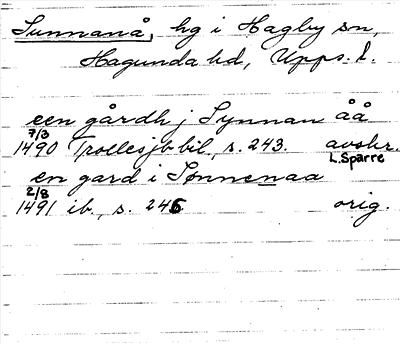 Sunnanå, hg i Hagby sn,
Hagunda hd, Upps. l.
een gårdh j Synnan åå
7/3
1490 Trollesjb bil, s. 243. avskr.
L. Sparre
en gard i Sønnenaa
2/8
1491 ib, s. 246 orig.